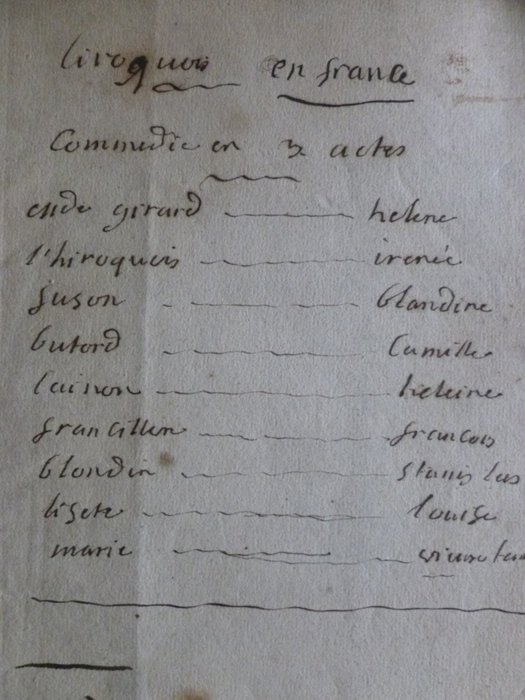 liroquois en france
Commedie en 3 actes
girard helene
l'hiroquois irenée
suson blandine
butord Camille
heleine
francillon francois
blondin stanislas
lisete louise
marie